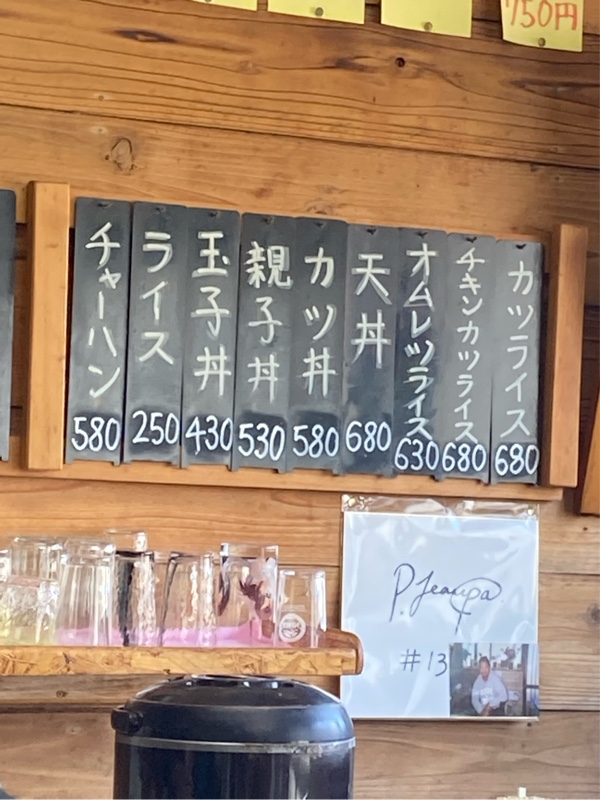 750円
カツライス
680
チキンカツライス
680
オムレツライス
630
天丼
680
カツ丼
580
親子丼
530
玉子丼
430
ライス
250
チャーハン
580
#13